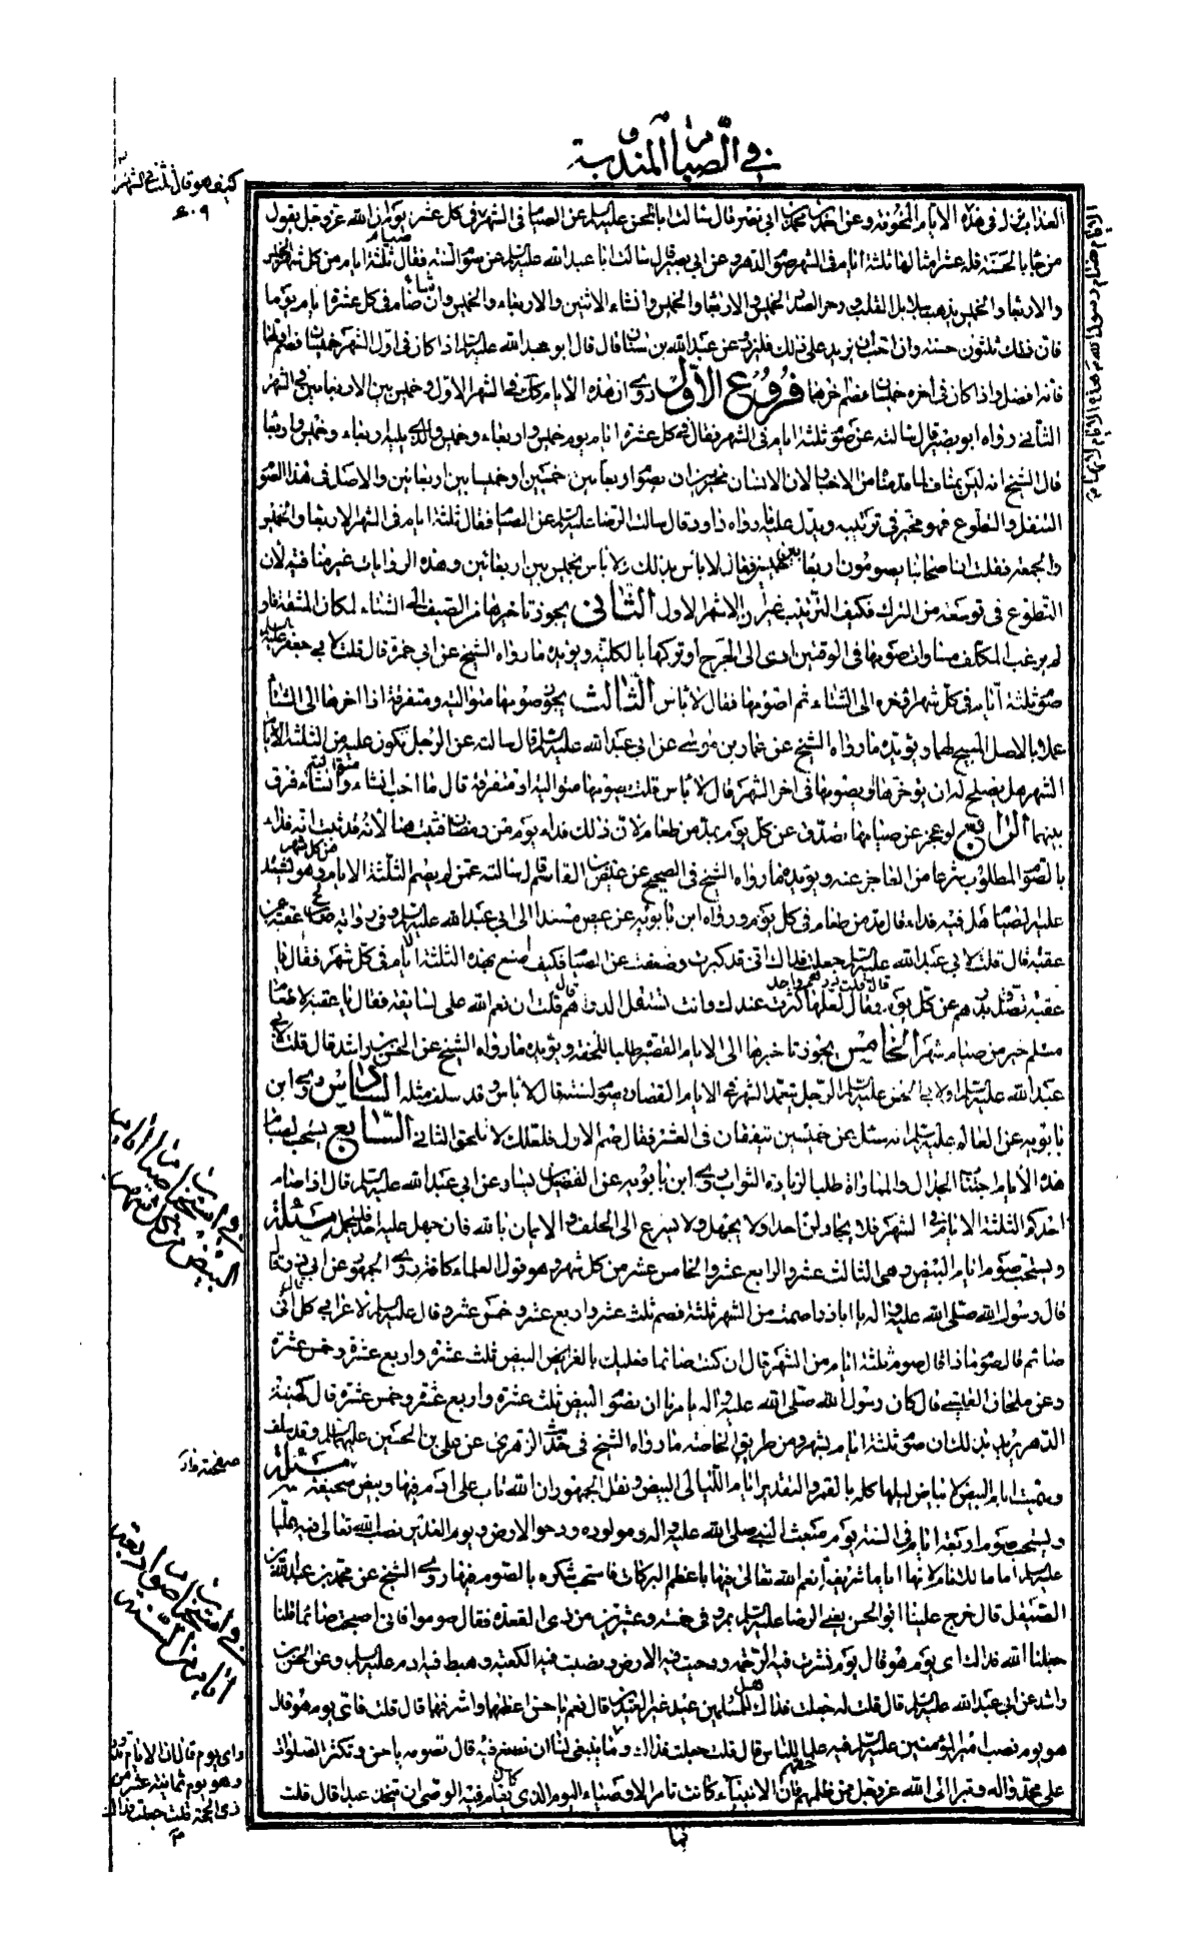 في الصيام المندوبة
كيف هو قال ثلث في الشهر
العذاب نزل في هذه الايام المخوفة وعن احمد بن محمد بن ابي نصر قال سالت ابا الحسن عليه السلم عن الصيام في الشهر في كل عشر يوم ان الله عز وجل يقول
من جاء بالحسنة فله عشر امثالها ثلثة ايام في الشهر صوم الدهر وعن ابي بصير قال سالت ابا عبد الله عليه السلم عن صوم السنة فقال صيام ثلثة ايام من كل شهر الخميس
والاربعاء والخميس يذهب ببلابل القلب و وحر الصدر الخميس والاربعاء والخميس وان شاء الاثنين والاربعاء والخميس وان شاء صام في كل عشرة ايام يوما
فان ذلك ثلثون حسنة وان احب ان يزيد على ذلك فليزد وعن عبد الله بن سنان قال قال ابو عبد الله عليه السلم اذا كان في اول الشهر خميسان فصم اولهما
فانه افضل واذا كان في اخره خميسان فصم اخرهما فروع الاول روى ان هذه الايام كانت في الشهر الاول خميس بين الاربعاءين وفي الشهر
الثاني رواه ابو بصير قال سالته عن صوم ثلثة ايام في الشهر فقال في كل عشرة ايام يوم خميس واربعاء وخميس والذي يليه اربعاء وخميس واربعاء
قال الشيخ انه ليس بمناف لما قدمنا من الاخبار لان الانسان مخير بين ان يصوم اربعاء بين خميسين او خميسا بين اربعائين والاصل في هذا الصوم
التنفل والتطوع فهو مخير في ترتيبه ويدل عليه ما رواه داود قال سالت الرضا عليه السلم عن الصيام فقال ثلثة ايام في الشهر الاربعاء والخميس
والجمعة فقلت ان اصحابنا يصومون اربعاء بين خميسين فقال لا باس بذلك ولا باس بخميس بين اربعائين وهذه الروايات غير منافية لان
التطوع في توسعة من الترك فكيف الترتيب غير ان الاشهر الاول الثاني يجوز تاخيرها من الصيف الى الشتاء لمكان المشقة فلو
لم يرغب المكلف منا وان صومها في الوقتين ادى الى الحرج او تركها بالكلية ويؤيده ما رواه الشيخ عن ابي حمزة قال قلت لابي جعفر عليه السلم
صوم ثلثة ايام في كل شهر اؤخره الى الشتاء ثم اصومها فقال لا باس الثالث يجوز صومها متوالية ومتفرقة اذا اخرها الى الشتاء
عملا بالاصل المبيح لهما ويؤيده ما رواه الشيخ عن عمار بن موسى عن ابي عبد الله عليه السلم قال سالته عن الرجل تكون عليه من الثلثة الايام
الشهر هل يصلح له ان يؤخرها او يصومها في اخر الشهر قال لا باس قلت يصومها متوالية او متفرقة قال ما احب ان شاء متوالية وان شاء فرق
بينهما الرابع لو عجز عن صيامها تصدق عن كل يوم بمد من طعام لان ذلك فداء يوم من رمضان فثبت هنا لانه قد ثبت انه فداء
بالصوم المطلوب شرعا من العاجز عنه ويؤيده ما رواه الشيخ في الصحيح عن عيص بن القاسم قال سالته عمن لم يصم الثلثة الايام من كل شهر وهو يشتد
عليه الصيام هل فيه فداء قال مد من طعام في كل يوم ورواه ابن بابويه عن عيص مسندا الى ابي عبد الله عليه السلم وفي رواية صالح بن عقبة عن
عقبة قال قلت لابي عبد الله عليه السلم جعلت فداك اني قد كبرت وضعفت عن الصيام فكيف اصنع بهذه الثلثة الايام في كل شهر فقال يا
عقبة تصدق بدرهم عن كل يوم قال قلت درهم واحد فقال لعلها كثرت عندك وانت تستقل الدرهم قال قلت ان نعم الله علي لسابغة فقال يا عقبة لاطعام
مسلم خير من صيام شهر الخامس يجوز تاخيرها الى الايام القصيرة طلبا للخفة ويؤيده ما رواه الشيخ عن الحسن بن راشد قال قلت لابي
عبد الله عليه السلم او لابي الحسن عليه السلم الرجل يتعمد الشهر في الايام القصار يصوم لسنته قال لا باس وقد سلف مثله السادس روى ابن
بابويه عن العالم عليه السلم انه سئل عن خميسين يتفقان في العشر فقال صم الاول فلعلك لا تلحق الثاني السابع يستحب لصائم
هذه الايام اجتناب الجدال والمماراة طلبا لزيادة الثواب روى ابن بابويه عن الفضيل بن يسار عن ابي عبد الله عليه السلم قال اذا صام
احدكم الثلثة الايام في الشهر فلا يجادلن احدا ولا يجهل ولا يسرع الى الحلف والايمان بالله فان جهل عليه احد فليحمل مسئلة
ويستحب صوم ايام البيض وهي الثالث عشر والرابع عشر والخامس عشر من كل شهر وهو قول العلماء كافة روى الجمهور عن ابي ذر قال
قال رسول الله صلى الله عليه واله يا اباذر اذا صمت من الشهر ثلثة فصم ثلث عشر واربع عشر وخمس عشر وقال عليه السلم لاعرابي كل قال اني
صائم قال صوم ماذا قال صوم ثلثة ايام من الشهر قال ان كنت صائما فعليك بالغر البيض ثلث عشرة واربع عشرة وخمس عشرة
وعن ملحان القيسي قال كان رسول الله صلى الله عليه واله يامرنا ان نصوم البيض ثلث عشرة واربع عشرة وخمس عشرة قال كهيئة
الدهر يريد بذلك ان صوم ثلثة ايام بشهر ومن طريق الخاصة ما رواه الشيخ في حديث الزهري عن علي بن الحسين عليهما السلم وقد سلف
وسميت ايام البيض لابيضاض ليلها كله بالقمر والتقدير ايام الليالي البيض ونقل الجمهور ان الله تاب على ادم فيها وبيض صحيفته مسئلة
ويستحب صوم اربعة ايام في السنة يوم مبعث النبي صلى الله عليه واله ومولوده ودحو الارض ويوم الغدير نصب الله تعالى فيه عليا
عليه السلم اماما للانام لانها ايام شريفة انعم الله تعالى فيها باعظم البركات فاستحب شكره بالصوم فيها روى الشيخ عن محمد بن عبد الله
الصيقل قال خرج علينا ابو الحسن يعني الرضا عليه السلم بمرو في خمسة وعشرين من ذي القعدة فقال صوموا فاني اصبحت صائما قلنا
جعلنا الله فداك اي يوم هو قال يوم نشرت فيه الرحمة ودحيت فيه الارض ونصبت فيه الكعبة وهبط فيه ادم عليه السلم وعن الحسن بن
راشد عن ابي عبد الله عليه السلم قال قلت له جعلت فداك هل للمسلمين عيد غير العيدين قال نعم يا حسن اعظمها واشرفها قال قلت فاي يوم هو قال
هو يوم نصب امير المؤمنين عليه السلم فيه علما للناس قال قلت جعلت فداك وما ينبغي لنا ان نصنع فيه قال تصومه يا حسن وتكثر الصلوات
على محمد واله وتبرأ الى الله عز وجل ممن ظلمهم حقهم فان الانبياء كانت تامر الاوصياء اليوم الذي كان يقام فيه الوصي ان يتخذ عيدا قال قلت
فما
في استحباب صيام ايام
البيض من كل شهر
في استحباب صوم اربعة
ايام من السنة
واي يوم قال ان الايام تدور
وهو يوم ثمانية عشر من
ذي الحجة قلت جعلت فداك